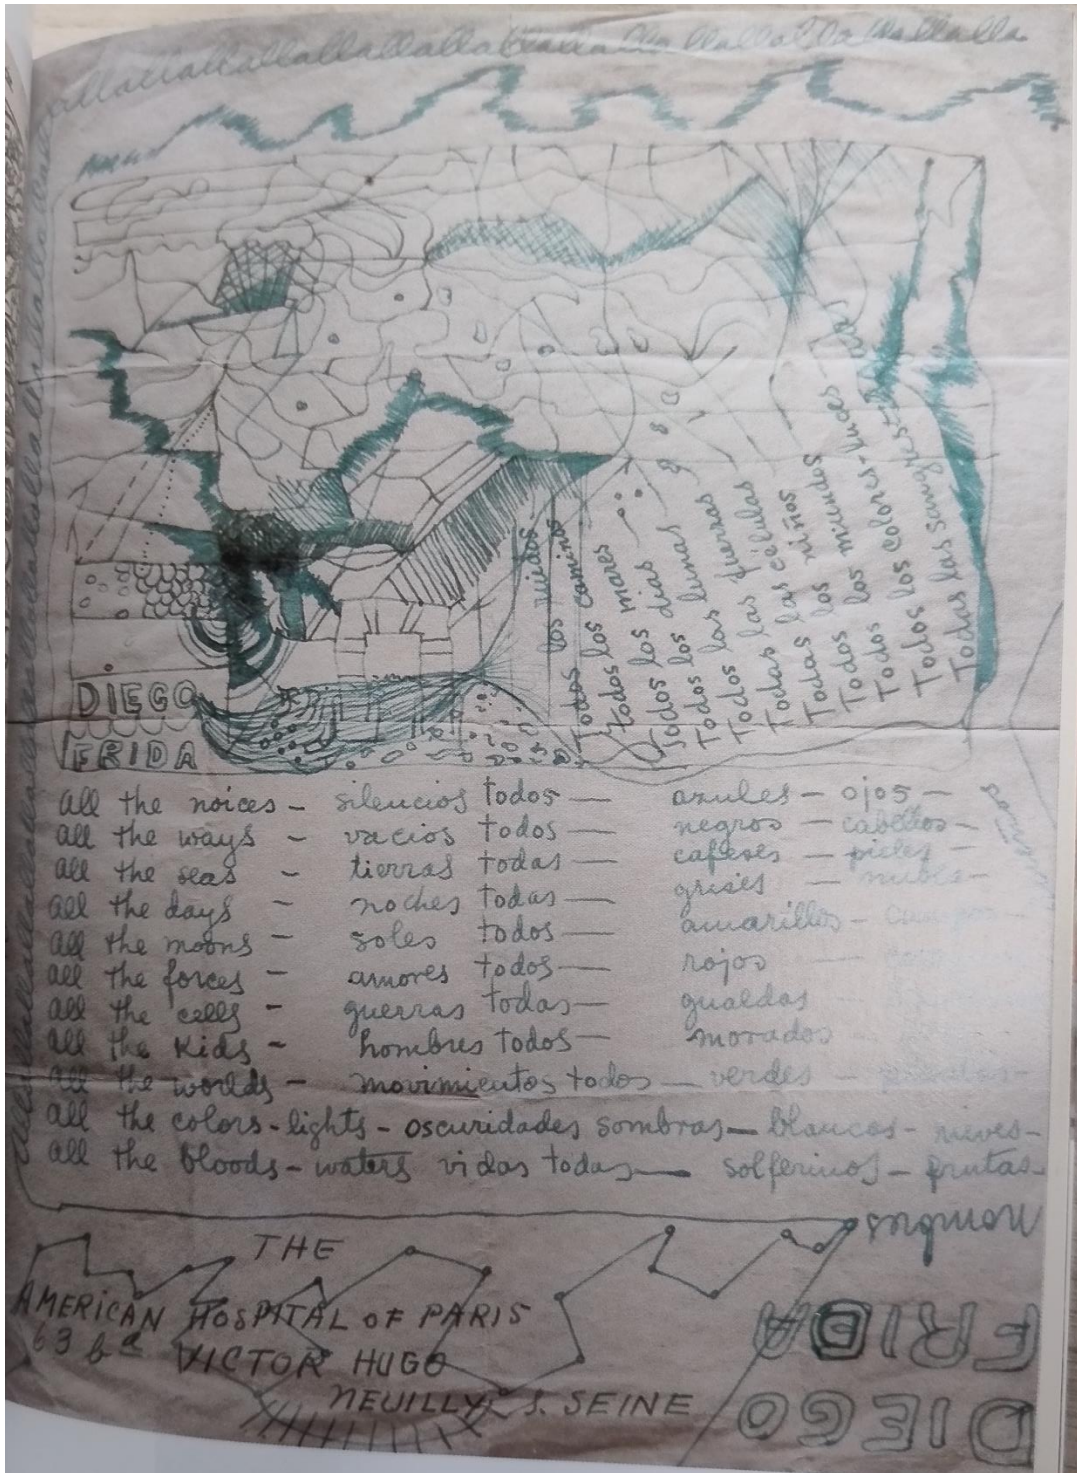 allallallallallallallallallallallallalla
Todos los ruidos
Todos los caminos
Todos los mares
Todos los dias
Todos los lunas
Todos las fuerzas
Todas las células
Todas los niños
Todos los mundos
Todos los colores-luces
Todas las sangres
DIEGO
FRIDA
all the noices - silencios todos — azules - ojos -
all the ways - vacios todos — negros - cabellos -
all the seas - tierras todas — cafeses - pieles -
all the days - noches todas — grises - nubes -
all the moons - soles todos — amarillos -
all the forces - amores todos — rojos
all the cells - guerras todas — gualdas
all the Kids - hombres todos — morados
all the worlds - movimientos todos — verdes -
all the colors-lights - oscuridades sombras — blancas - nieves -
all the bloods - waters vidas todas — solferinos - frutas -
THE
AMERICAN HOSPITAL OF PARIS
63
VICTOR HUGO
NEUILLY S. SEINE
FRIDA
DIEGO